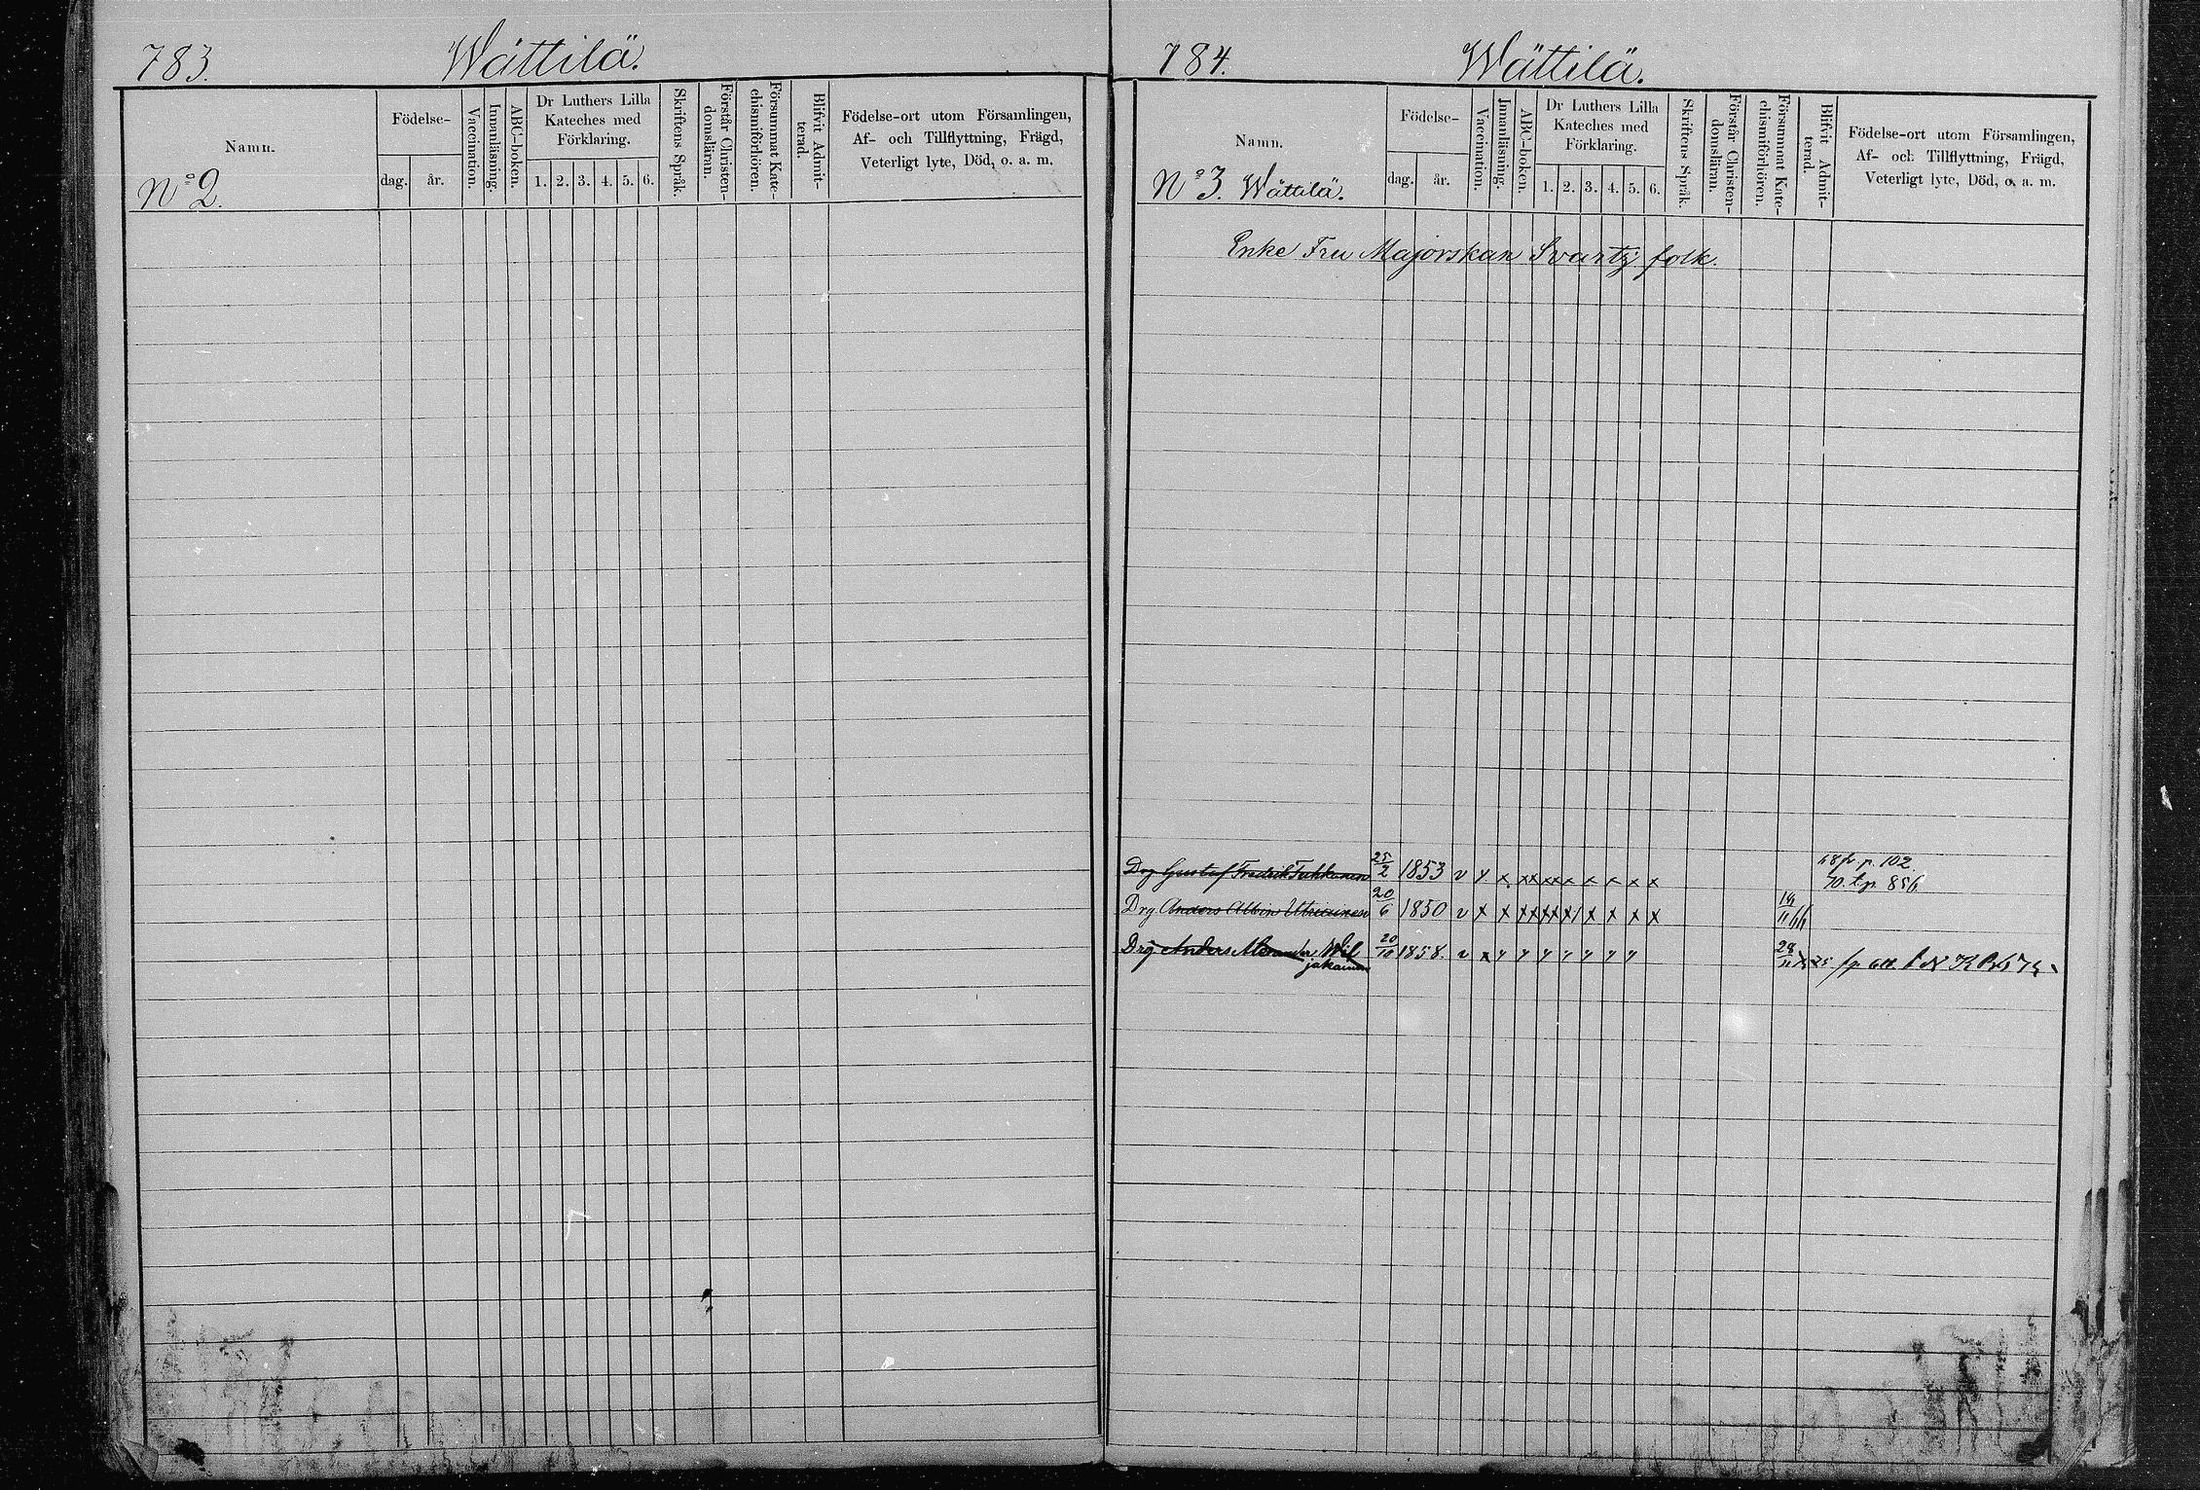 783. Wättilä.
Namn.
Födelse-
dag. år.
Vaccination.
Innanläsning.
ABC-boken.
Dr Luthers Lilla
Kateches med
Förklaring.
1. 2. 3. 4. 5. 6.
Skriftens Språk.
Förstår Christen-
domsläran.
Försummat Kate-
chismiförhören.
Blifvit Admit-
terad.
Födelse-ort utom Församlingen,
Af- och Tillflyttning, Frägd,
Veterligt lyte, Död, o. a. m.
No 2.
784. Wättilä.
Namn.
Födelse-
dag. år.
Vaccination.
Innanläsning.
ABC-boken.
Dr Luthers Lilla
Kateches med
Förklaring.
1. 2. 3. 4. 5. 6.
Skriftens Språk.
Förstår Christen-
domsläran.
Försummat Kate-
chismiförhören.
Blifvit Admit-
terad.
Födelse-ort utom Församlingen,
Af- och Tillflyttning, Frägd,
Veterligt lyte, Död, o. a. m.
No 3. Wättilä.
Enke Fru Majorskan Svartz folk.
Drg Gustaf Fredrik 25/2 1853 v x x xx xxx x x x x x 68 fr. p. 102.
70. t. p. 856
Drg Anders Albin 20/6 1850 v x x
Drg Anders Alexander Wil
jakainen 20/10 1858. v